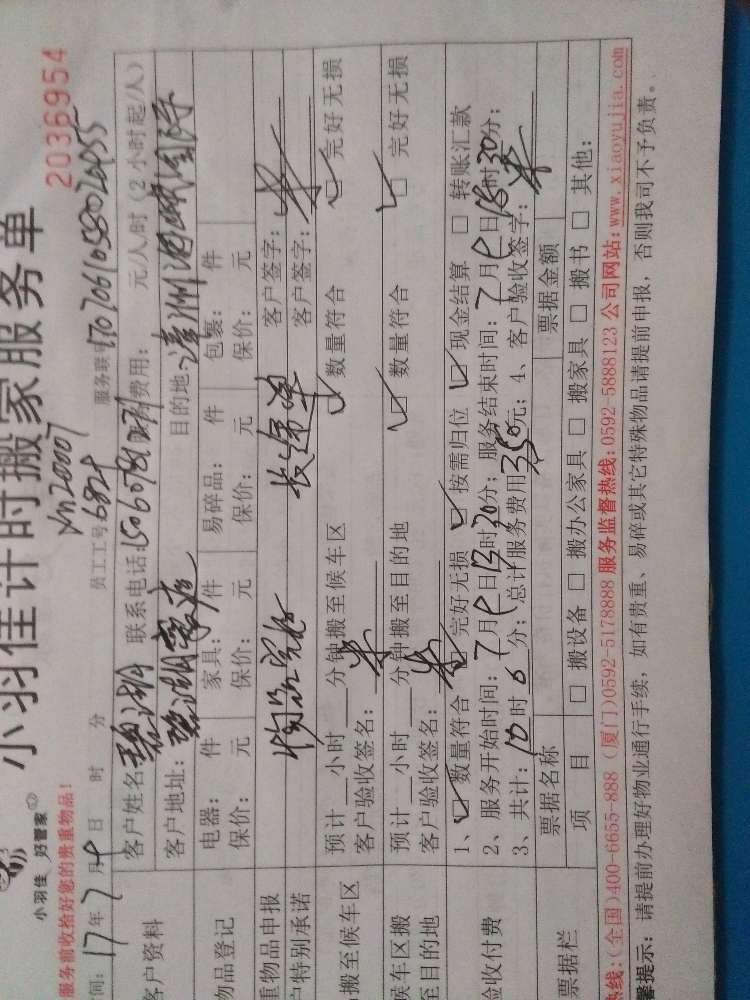 小羽佳计时搬家服务单
2036954
小羽佳 好管家
服务前收拾好您的贵重物品!
yn20007
员工工号:6828
服务联
间: 17年7月 日 时 分
客户资料
客户姓名: 碧湖 联系电话: 费用: 元/人/时 (2小时起/人)
客户地址: 碧湖豪庭 目的地:
物品登记
电器: 件 家具: 件 易碎品: 件 包裹: 件
保价: 元 保价: 元 保价: 元 保价: 元
重物品申报 客户签字:
户特别承诺 客户签字:
搬至候车区
预计__小时__分钟搬至候车区 ☑数量符合 ☑完好无损
客户验收签名:
候车区搬至目的地
预计__小时__分钟搬至目的地 ☑数量符合 ☑完好无损
客户验收签名:
验收付费
1、☑数量符合 ☑完好无损 ☑按需归位 ☑现金结算 □转账汇款
2、服务开始时间: 7月 日13时20分; 服务结束时间: 7月 日 时30分;
3、共计: 10时6分; 总计服务费用350元; 4、客户验收签字:
票据栏
票据名称 票据金额
项 目 □搬设备 □搬办公家具 □搬家具 □搬书 □其他:
热线:(全国)400-6655-888 (厦门)0592-5178888 服务监督热线:0592-5888123 公司网站:www.xiaoyujia.com
馨提示: 请提前办理好物业通行手续, 如有贵重、易碎或其它特殊物品请提前申报, 否则我司不予负责。